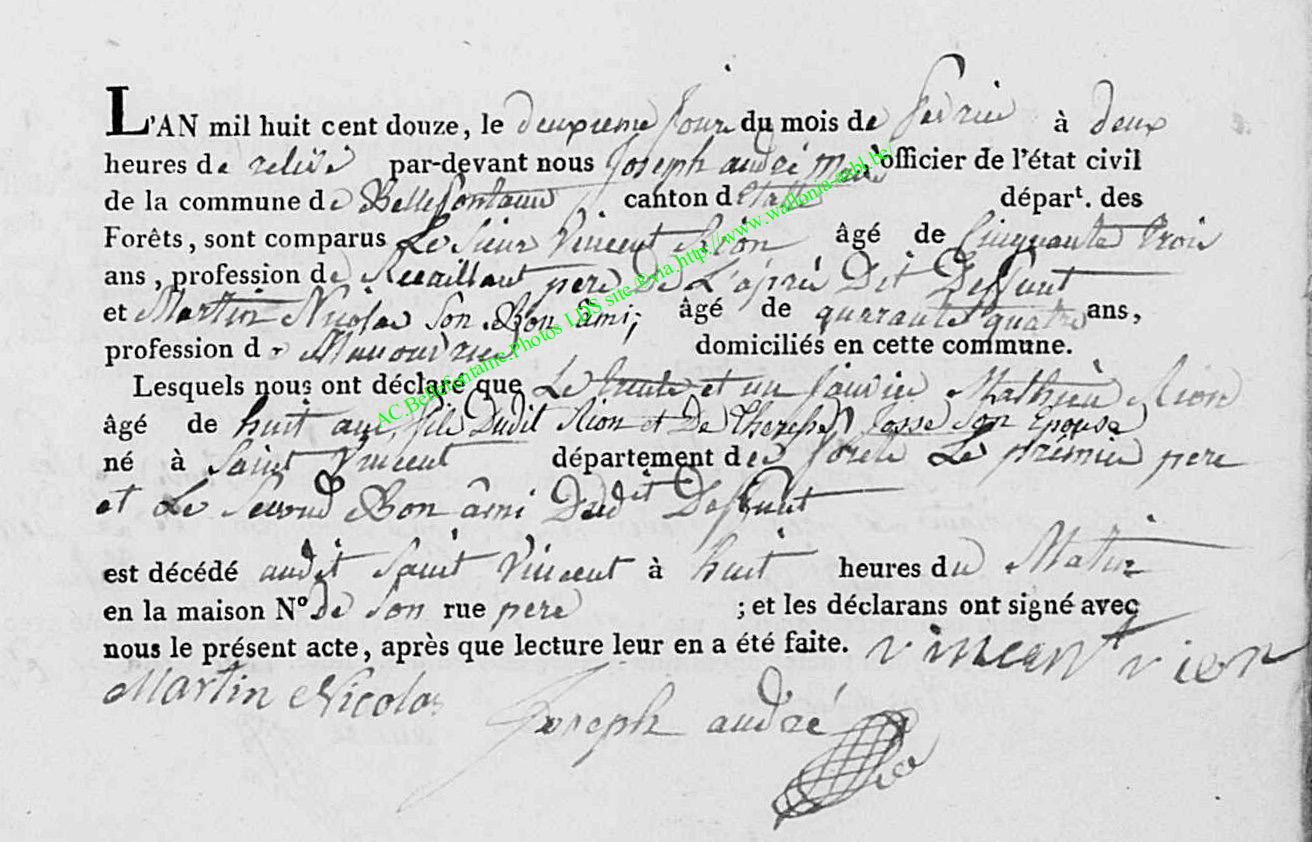 L'AN mil huit cent douze, le deuxieme jour du mois de fevrier à deux
heures de relevé par-devant nous Joseph andré maire officier de l'état civil
de la commune de Bellefontaine canton d'Etalle départ. des
Forêts, sont comparus Le Sieur Vincent Rion âgé de Cinquante trois
ans, profession de pere De L'aprés Dit Deffunt
et Martin Nicolas Son Bon ami; âgé de quarante quatre ans,
profession de Manouvrier domiciliés en cette commune.
Lesquels nous ont déclaré que Le trente et un Janvier Mathieu Rion
âgé de huit ans, fils Dudit Rion et De Therese Josse Son Epouse
né à Saint Vincent département des forets Le prémier pere
et Le Second Bon âmi Dudit Deffunt
est décédé audit Saint Vincent à huit heures du Matin
en la maison N° de Son rue pere ; et les déclarans ont signé avec
nous le présent acte, après que lecture leur en a été faite. vincent rion
Martin Nicolas Joseph andré
AC.Bellefontaine.Photos LDS site via http://www.wallonia-asbl.be/